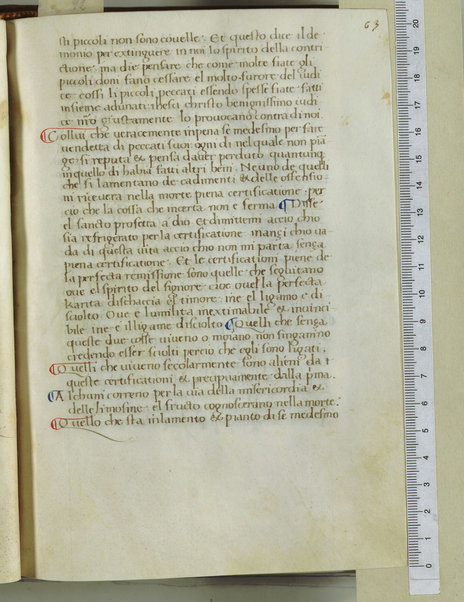 63
sti piccoli non sono covelle · Et questo dice il de
monio per extinguere in noi lo spirito della contri
ctione · ma die pensare che come molte fiate gli
piccoli doni fano cessare el molto furore del iudi
ce · cossi li piccoli peccati essendo spesse fiate fatti
insieme adunati ihesu christo benignissimo iudi
ce nro giustamente lo provocano contra di noi ·
Collui che veracemente in pena se medesmo per fare
vendetta di peccati suoi ogni di nel quale non pia
ge si reputa et pensa daver perduto quantunq
in quello di habia fatti altri beni · Neuno de quelli
che si lamentano de cadimenti et delle offensio
ni ricevera nella morte piena certificatione · per
cio che la cossa che incerta non e ferma Disse
el sancto propheta a dio et dimittemi accio chio
sia refrigerato per la certificatione · inanci chio va
da di questa vita accio chio non mi parta senza
piena certificatione · Et le certificationi piene de
la perfecta remissione sono quelle · che seguitano
ove el spirito del signore · cioe ove la perfecta
karita discaccia el timore · ine el ligamo e di
sciolto Ove e lumilita inextimabile et invinci
bile ine e il ligame disciolto Quelli che senza
queste due cosse viveno o morano non singannino
credendo esser sciolti percio che egli sono ligati ·
Quelli che viveno secolarmente sono alieni da
queste certificationi et precipuamente dalla prima.
Alchuni correno per la via della misericordia et
delle limosine · el fructo cognoscerano nella morte ·
Quello che sta in lamento et pianto di se medesmo